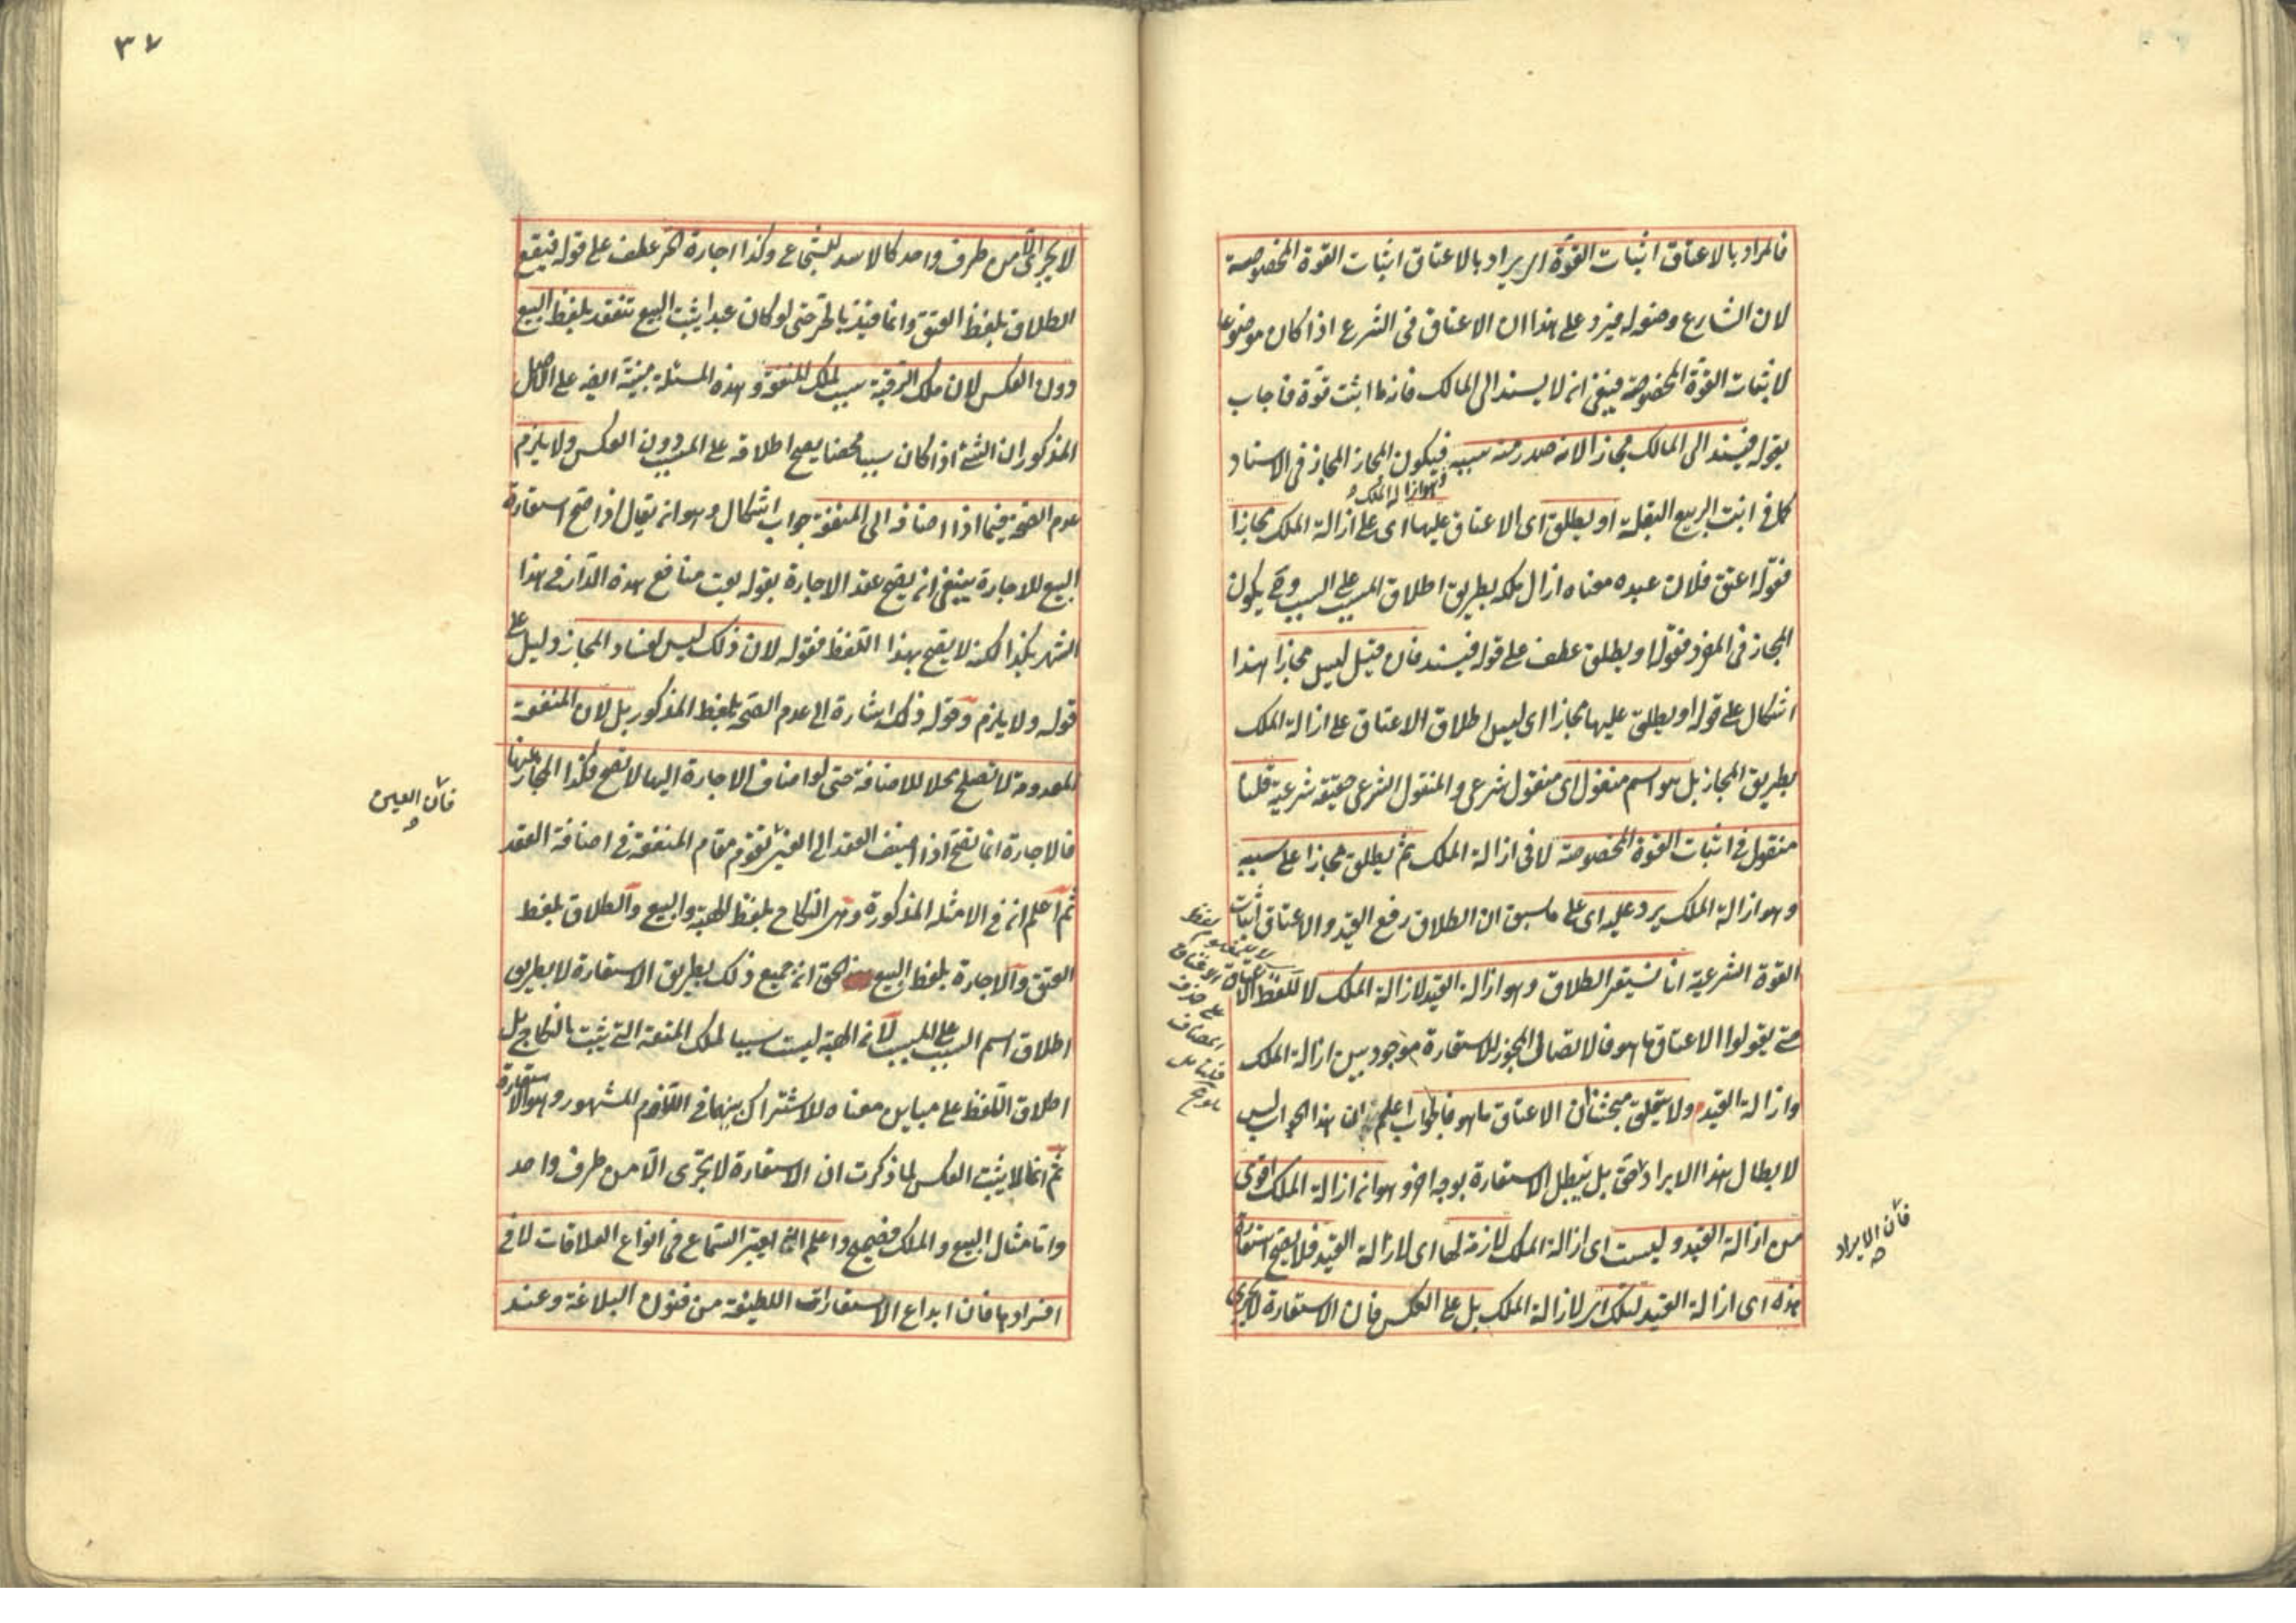 فالمراد بالاعتاق اثبات القوة اى يراد بالاعتاق اثبات القوة المخصوصة
لان الشارع وضعه له فيرد على هذا ان الاعتاق فى الشرع اذا كان موضوعا
لاثبات القوة المخصوصة فينبغى ان لا يسند الى المالك فانه ما اثبت قوة فاجاب
بقوله فيسند الى المالك مجازا لانه صدر منه سببه فيكون المجاز المجاز فى الاسناد
وهو ازالة الملك
كما فى انبت الربيع البقل او يطلق اى الاعتاق عليها اى على ازالة الملك مجازا
فقوله اعتق فلان عبده معناه ازال ملكه بطريق اطلاق المسبب على السبب وح يكون
المجاز فى المفرد فقوله او يطلق عطف على قوله فيسند فان قيل ليس مجازا هذا
اشكال على قوله او يطلق عليها مجازا اى ليس اطلاق الاعتاق على ازالة الملك
بطريق المجاز بل هو اسم منقول اى منقول شرعى والمنقول الشرعى حقيقة شرعية قلنا
منقول فى اثبات القوة المخصوصة لا فى ازالة الملك ثم يطلق مجازا على سببه
وهو ازالة الملك يرد عليه اى على ما سبق ان الطلاق رفع القيد والاعتاق اثبات
القوة الشرعية انا نستعير الطلاق وهو ازالة القيد لازالة الملك لا للفظ الاعتاق
حتى يقولوا الاعتاق ما هو فالاتصال المجوز للاستعارة موجود بين ازالة الملك
وازالة القيد ولا يتعلق مبحثنا ان الاعتاق ما هو فالجواب اعلم ان هذا الجواب ليس
لابطال هذا الايراد حق بل يبطل الاستعارة بوجه اخر وهو ان ازالة الملك اقوى
من ازالة القيد وليست اى ازالة الملك لازمة لها اى لازالة القيد فلا يصح استعارة
هذه اى ازالة القيد لتلك اى لازالة الملك بل على العكس فان الاستعارة لا تجرى
فان الايراد
على حذف
المضاف
٣٧
لا تجرى الا من طرف واحد كالاسد للشجاع وكذا اجارة الحر عطف على قوله فيقع
الطلاق بلفظ العتق وانما قيد بالحر حتى لو كان عبدا يثبت البيع تنعقد بلفظ البيع
دون العكس لان ملك الرقبة سبب لملك المنفعة وهذه المسئلة مبنية ايضا على الاصل
المذكور ان الشئ اذا كان سببا محضا يصح اطلاقه على المسبب دون العكس ولا يلزم
عدم الصحة فيما اذا اضافه الى المنفعة جواب اشكال وهو انه يقال اذا صح استعارة
البيع للاجارة ينبغى ان يصح عقد الاجارة بقوله بعت منافع هذه الدار فى هذا
الشهر بكذا لكنه لا يصح بهذا اللفظ فقوله لان ذلك ليس لفساد المجاز دليل على
قوله ولا يلزم وقوله ذلك اشارة الى عدم الصحة بلفظ المذكور بل لان المنفعة
المعدومة لا تصلح محلا للاضافة حتى لو اضاف الاجارة اليها لا تصح فكذا المجاز عنها
فالاجارة انما تصح اذا اضيف العقد الى العين تقوم مقام المنفعة فى اضافة العقد
ثم اعلم انه فى الامثلة المذكورة وهى النكاح بلفظ الهبة والبيع والطلاق بلفظ
العتق والاجارة بلفظ البيع الحق ان جميع ذلك بطريق الاستعارة لا بطريق
اطلاق اسم السبب على المسبب لان الهبة ليست سببا لملك المتعة التى يثبت بالنكاح بل
اطلاق اللفظ على مباين معناه للاشتراك بينهما فى اللازم المشهور وهو الاستعارة
ثم انما لا يثبت العكس لما ذكرت ان الاستعارة لا تجرى الا من طرف واحد
واما مثال البيع والملك فصحيح واعلم انه يعتبر السماع فى انواع العلاقات لا فى
افرادها فان ابداع الاستعارات اللطيفة من فنون البلاغة وعند
فان العين